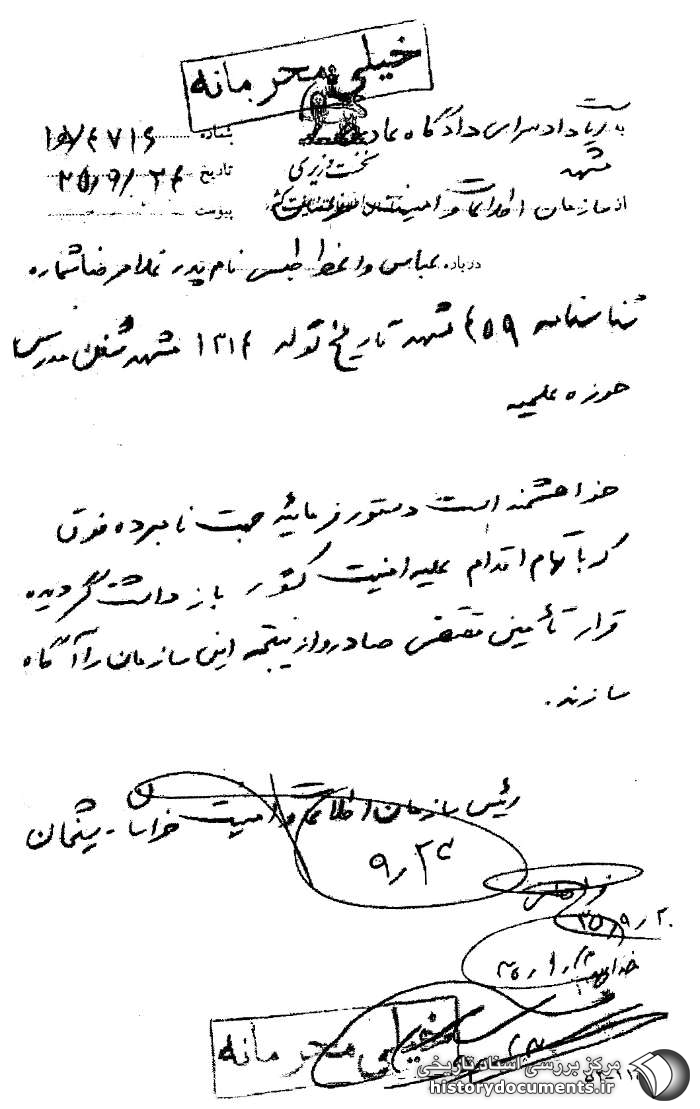 خیلی محرمانه
به ریاست دادسرای دادگاه عادی
شماره ۱۵/۴۷۱۶
مشهد
نخست وزیری
تاریخ ۳۵/۹/۲۴
از سازمان اطلاعات و امنیت
پیوست
درباره عباس واعظ طبسی نام پدر غلامرضا شماره
شناسنامه ۴۵۹ مشهد تاریخ تولد ۱۳۱۴ مشهد شغل مدرس
حوزه علمیه
خواهشمند است دستور فرمائید جهت نامبرده فوق
که باتهام اقدام علیه امنیت کشور بازداشت گردیده
قرار تأمینی مقتضی صادر و از نتیجه این سازمان را آگاه
سازند.
رئیس سازمان اطلاعات و امنیت خراسان - شیخان
۹/۲۳
۳۵/۹/۲۰
خیلی محرمانه
مرکز بررسی اسناد تاریخی
historydocuments.ir